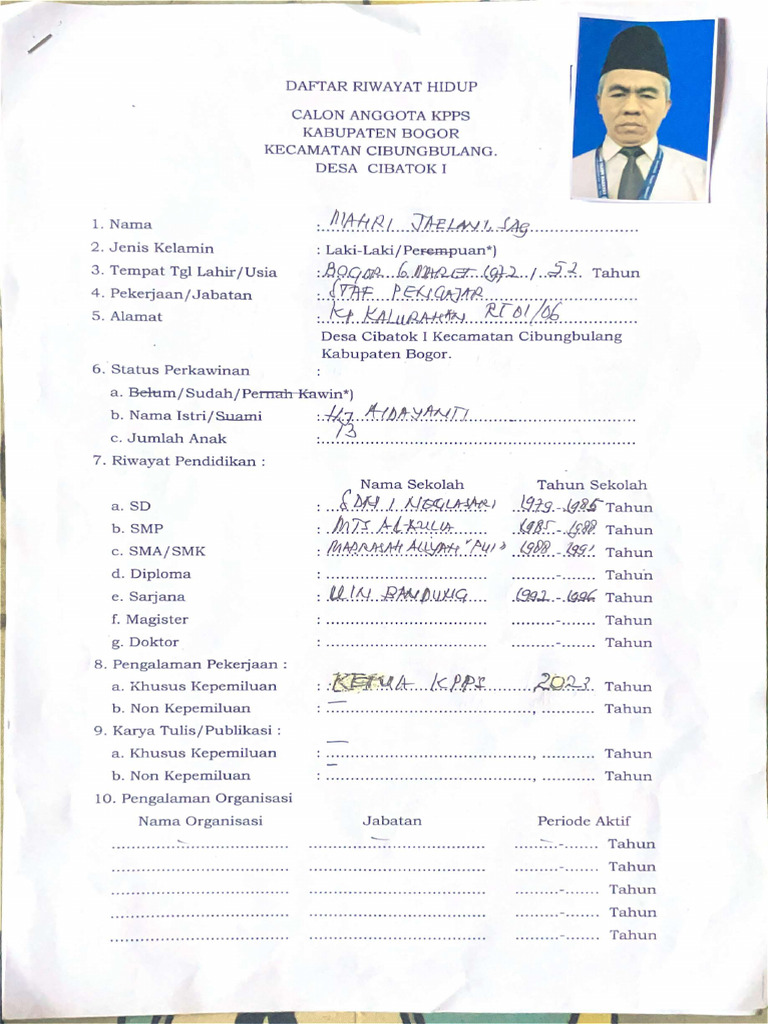 DAFTAR RIWAYAT HIDUP
CALON ANGGOTA KPPS
KABUPATEN BOGOR
KECAMATAN CIBUNGBULANG.
DESA CIBATOK I
1. Nama : MAHRI JAELANI, SAg
2. Jenis Kelamin : Laki-Laki/Perempuan*)
3. Tempat Tgl Lahir/Usia : BOGOR 6 MARET 1972 / 52 Tahun
4. Pekerjaan/Jabatan : STAF PENGAJAR
5. Alamat : KP KALURAHAN RT 01/06
Desa Cibatok I Kecamatan Cibungbulang
Kabupaten Bogor.
6. Status Perkawinan :
a. Belum/Sudah/Pernah Kawin*)
b. Nama Istri/Suami : Hj AIDAYANTI
c. Jumlah Anak :
7. Riwayat Pendidikan :
Nama Sekolah Tahun Sekolah
a. SD : SDN 1 NEGLASARI 1979 - 1985 Tahun
b. SMP : MTS 1985 - 1988 Tahun
c. SMA/SMK : MADRASAH ALIYAH "PUI" 1988 - 1991 Tahun
d. Diploma : - Tahun
e. Sarjana : UIN BANDUNG 1992 - 1996 Tahun
f. Magister : - Tahun
g. Doktor : - Tahun
8. Pengalaman Pekerjaan :
a. Khusus Kepemiluan : KETUA KPPS 2023 Tahun
b. Non Kepemiluan : — , Tahun
9. Karya Tulis/Publikasi :
a. Khusus Kepemiluan : — , Tahun
b. Non Kepemiluan : — , Tahun
10. Pengalaman Organisasi
Nama Organisasi Jabatan Periode Aktif
- - - - Tahun
- Tahun
- Tahun
- Tahun
- Tahun